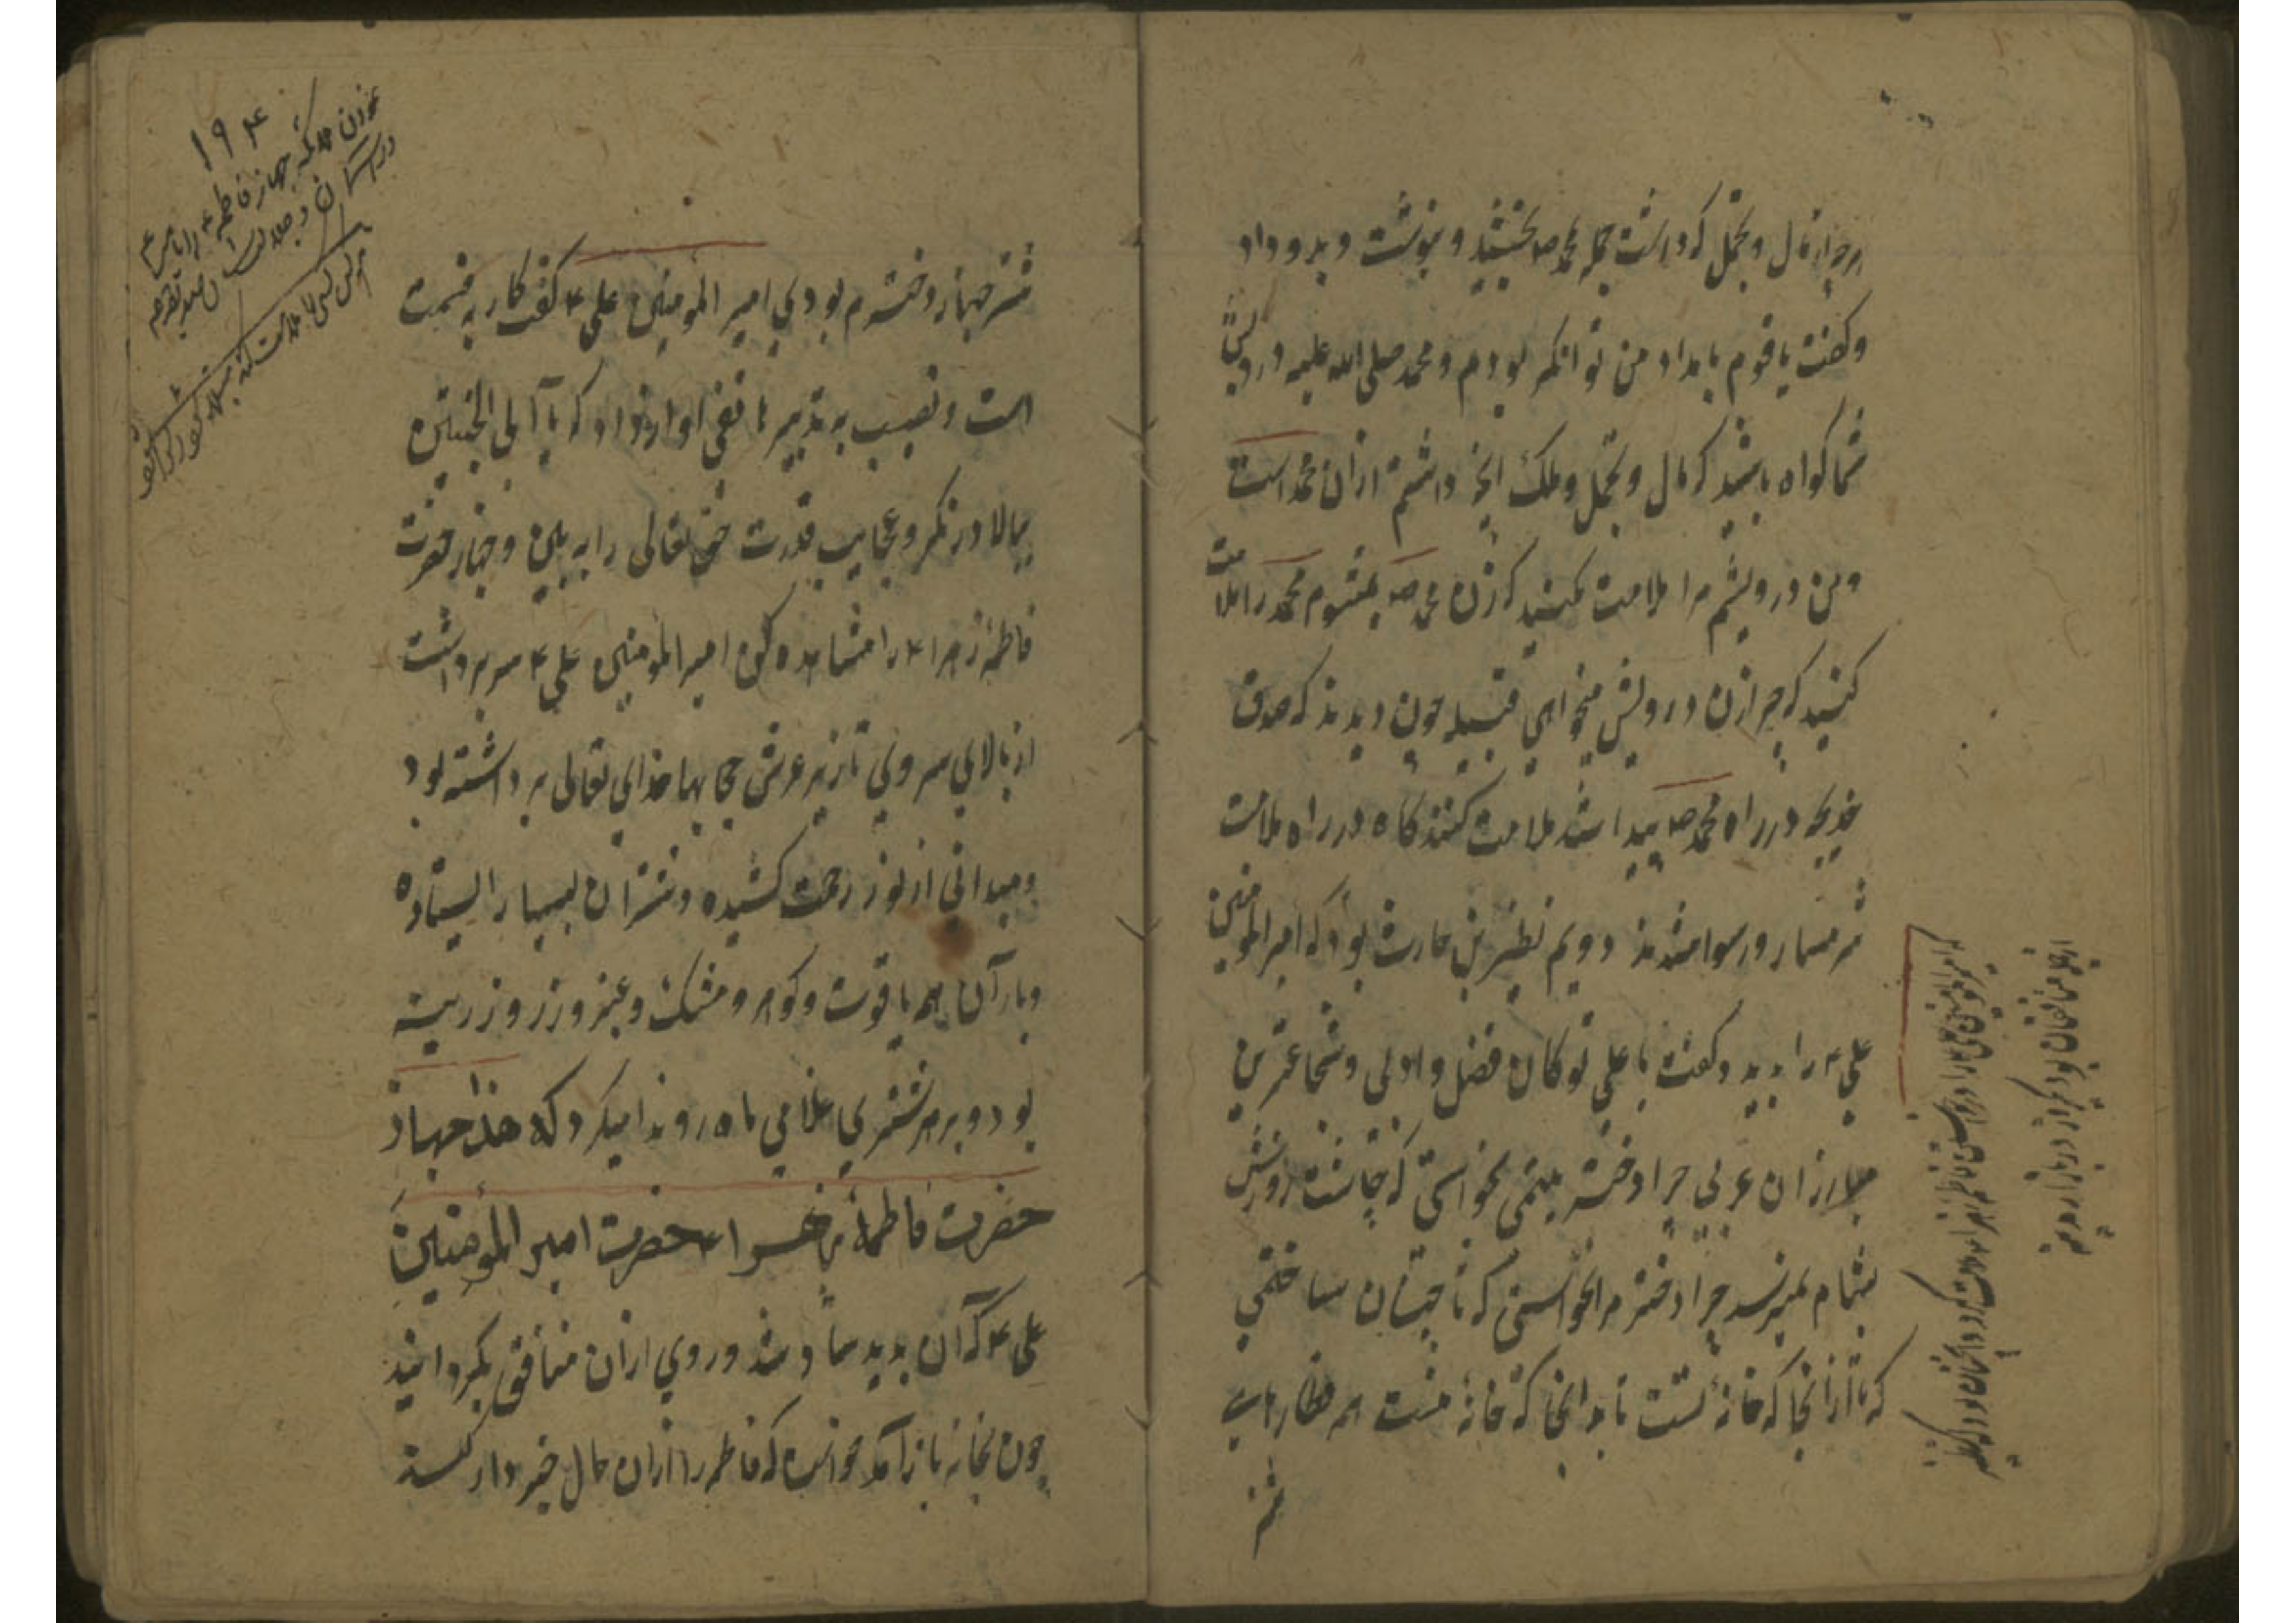 هرچه از مال و تجمل که داشت جمله بمحمد ص بخشید و بنوشت و بدو داد
و گفت یا قوم بامداد من توانگر بودم و محمد صلی الله علیه درویش
شما گواه باشید که مال و تجمل و ملک آنچه داشتم از آن محمد است
و من درویشم مرا ملامت مکنید که زن محمد ص میشوم محمد را ملامت
کنید که چرا زن درویش میخواهی قبیله چون دیدند که صدق
خدیجه در راه محمد ص پیدا شد ملامت کنندگاه در راه ملامت
شرمسار و رسوا شدند دویم نظیر بن حارث بود که امیرالمؤمنین
علی ع را بدید و گفت یا علی تو کان فضل و ادبی و شجاعترین
مبارزان عربی چرا دختر یتیمی بخواستی که چاشت روزش
بشام نمیرسد چرا دخترم نخواستی که تا چنان ساختمی
که تا از آنجا که خانه تست تا بدانجا که خانه منست همه قطارهای
شتر
امیر المؤمنین علی را در خواستن فاطمه زهرا ملامت کرد
از منافقان بود یکروز در بازار مدینه
۱۹۴
نمودن ملائکه جهاز فاطمه را
در آسمان و
هر کس کسی را ملامت کند
شتر جهاز دخترم بودی امیر المؤمنین علی ع گفت کار به قسمت
است و نصیب به تدبیر هاتفی آواز داد که یا ابی الحسنین
ببالا درنگر و عجایب قدرت حق تعالی را به بین و جهاز حضرت
فاطمه زهرا ع را مشاهده کن امیر المؤمنین علی ع سر برداشت
از بالای سر وی تا زیر عرش حجابها خدای تعالی برداشته بود
و میدانی از نور رحمت کشیده و شتران بسیار ایستاده
و بار آن همه یاقوت و گوهر و مشک و عنبر و زر و زرینه
بود و بر هر شتری غلامی ماه رو ندا میکرد که هذا جهاز
حضرت فاطمة زهرا ع حضرت امیر المؤمنین
علی ع که آن بدید شاد شد و روی از آن منافق بگردانید
چون بخانه باز آمد خواست که فاطمه را از آن حال خبردار کند